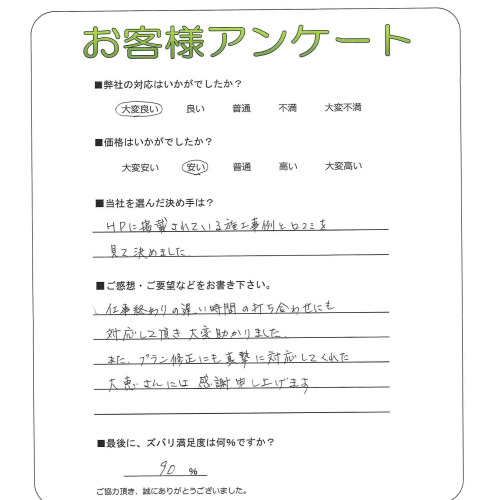 お客様アンケート
■弊社の対応はいかがでしたか？
大変良い 良い 普通 不満 大変不満
■価格はいかがでしたか？
大変安い 安い 普通 高い 大変高い
■当社を選んだ決め手は？
HPに掲載されている施工事例と口コミを
見て決めました.
■ご感想・ご要望などをお書き下さい。
仕事終わりの遅い時間の打ち合わせにも
対応して頂き大変助かりました.
また、プラン修正にも真摯に対応してくれた
大恵さんには感謝申し上げます
■最後に、ズバリ満足度は何％ですか？
90 %
ご協力頂き、誠にありがとうございました。